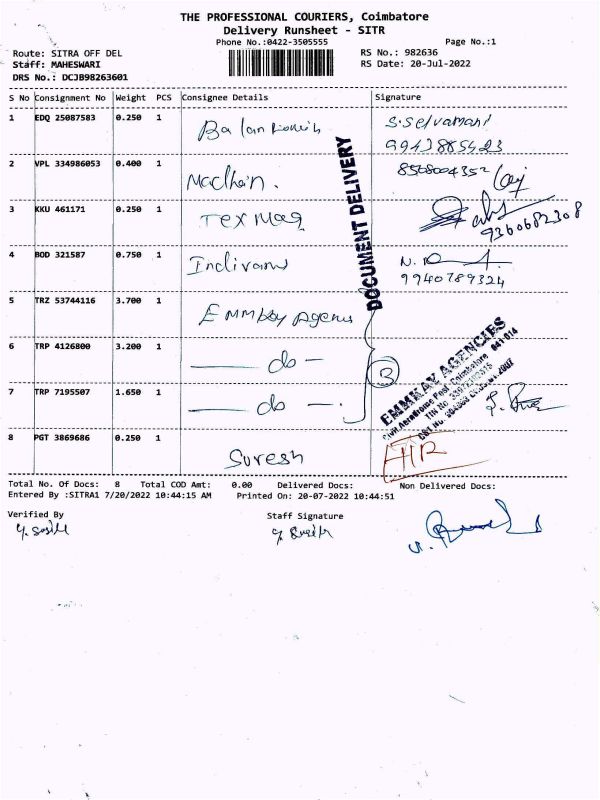 THE PROFESSIONAL COURIERS, Coimbatore
Delivery Runsheet - SITR
Phone No.:0422-3505555
Page No.:1
Route: SITRA OFF DEL
RS No.: 982636
Staff: MAHESWARI
RS Date: 20-Jul-2022
DRS No.: DCJB98263601
S No Consignment No Weight PCS Consignee Details Signature
1 EDQ 25087583 0.250 1 S.Selvamani
9943885423
2 VPL 334986053 0.400 1 8568004352
3 KKU 461171 0.250 1 Tex Maq
9360682308
4 BOD 321587 0.750 1 N.
9940789324
DOCUMENT DELIVERY
5 TRZ 53744116 3.700 1 Emmkay Agencies
6 TRP 4126800 3.200 1 — do —
3
7 TRP 7195507 1.650 1 — do —.
EMMKAY AGENCIES
Civil Aerodrome Post, Coimbatore 641 014
8 PGT 3869686 0.250 1 Suresh
Total No. Of Docs: 8 Total COD Amt: 0.00 Delivered Docs: Non Delivered Docs:
Entered By :SITRA1 7/20/2022 10:44:15 AM Printed On: 20-07-2022 10:44:51
Verified By
Staff Signature